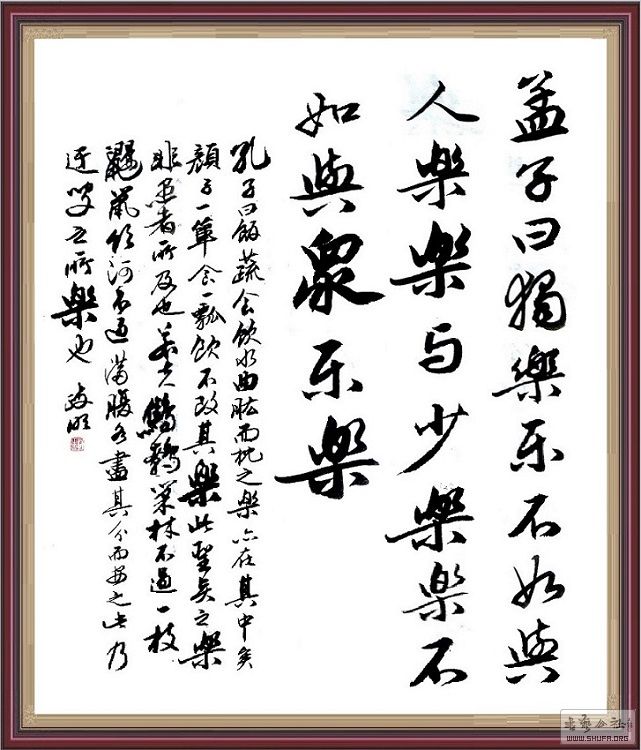 孟子曰獨樂乐不如與
人樂樂与少樂樂不
如與眾乐樂
孔子曰飯蔬食飲水曲肱而枕之樂亦在其中矣
顔子一箪食一瓢飲不改其樂此聖賢之樂
非愚者所及也若夫鷦鷯巢林不過一枝
鼴鼠飲河不過滿腹各盡其分而安之此乃
迂叟之所樂也
书艺公社
WWW.SHUFA.ORG